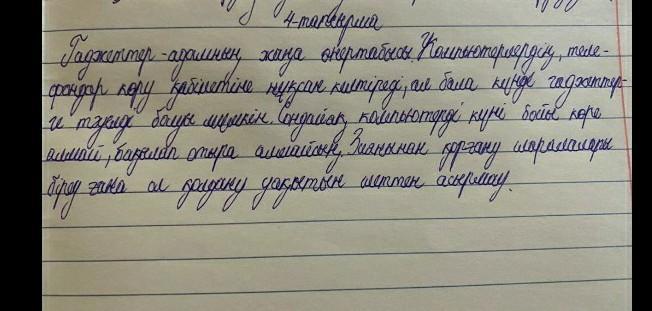 4-тапсырма
Гаджеттер - адамның жаңа өнертабысы. Компьютерлердің, теле-
фондар көру қабілетіне нұқсан келтіреді, ал бала күнде гаджеттер-
ге тәуелді болуы мүмкін. Сондайақ, компьютерді күні бойы көре
алмай, бақылап отыра алмайсың. Зиянынан қорғану шаралары
біреу ғана ол қолдану уақытын шеттен асырмау.